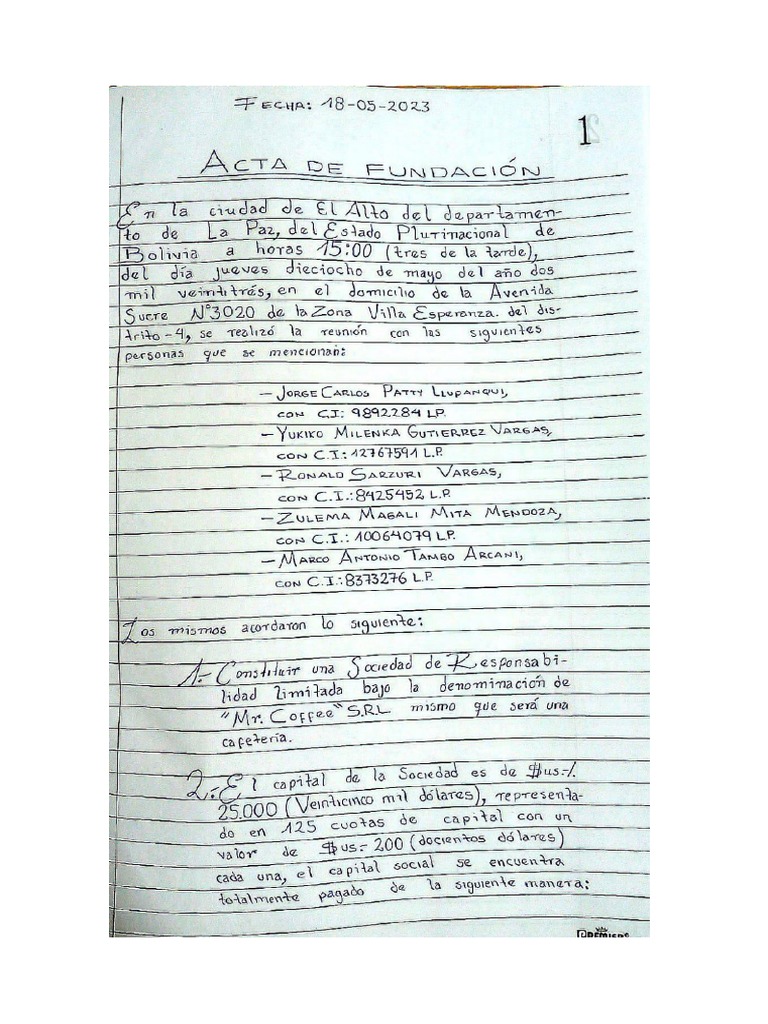 FECHA: 18-05-2023
1
ACTA DE FUNDACIÓN
En la ciudad de El Alto del departamen-
to de La Paz, del Estado Plurinacional de
Bolivia a horas 15:00 (tres de la tarde),
del día jueves dieciocho de mayo del año dos
mil veintitrés, en el domicilio de la Avenida
Sucre N°3020 de la Zona Villa Esperanza. del dis-
trito-4, se realizó la reunión con las siguientes
personas que se mencionan:
- JORGE CARLOS PATTY LLUPANQUI,
CON C.I: 9892284 L.P.
- YUKIKO MILENKA GUTIERREZ VARGAS,
CON C.I.: 12767591 L.P.
- RONALD SARZURI VARGAS,
CON C.I.: 8425452 L.P.
- ZULEMA MAGALI MITA MENDOZA,
CON C.I.: 10064079 L.P.
- MARCO ANTONIO TAMBO ARCANI,
CON C.I.: 8373276 L.P.
Los mismos acordaron lo siguiente:
1.- Constituir una Sociedad de Responsabi-
lidad limitada bajo la denominación de
"Mr. Coffee" S.R.L mismo que será una
cafetería.
2.- El capital de la Sociedad es de $us.-/.
25.000 (Veinticinco mil dólares), representa-
do en 125 cuotas de capital con un
valor de $us.- 200 (docientos dólares)
cada una, el capital social se encuentra
totalmente pagado de la siguiente manera: